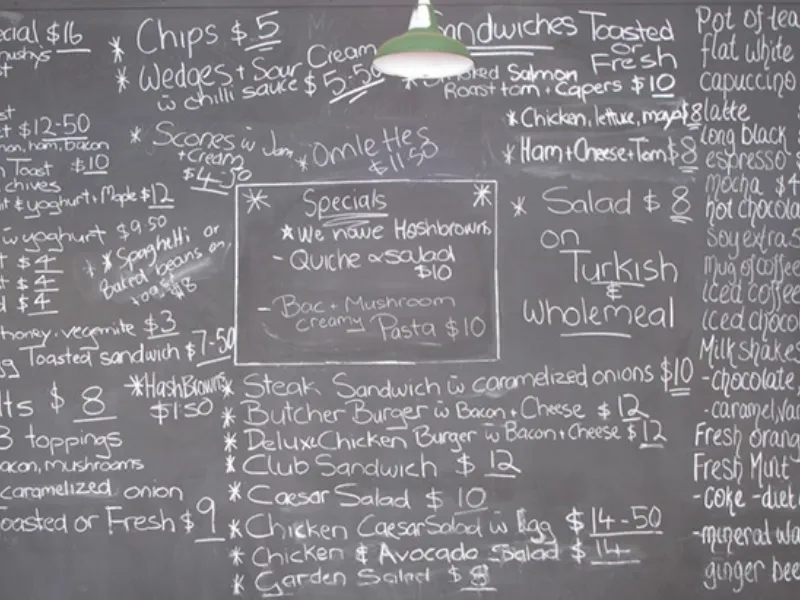 ecial $16
mushys
* Chips $5
* Wedges + Sour Cream
w chilli sauce $5-50
* Scones w Jam
+ Cream
$4-50
* Omlettes
$11.50
$12-50
ham, bacon
Toast $10
chives
& yoghurt + Maple $12
w yoghurt $9.50
$4
$4
$4
* * Spaghetti or
Baked beans on
$8
honey, vegemite $3
Toasted sandwich $7-50
* Hash Browns
$1.50
$8
3 toppings
bacon, mushrooms
caramelized onion
Toasted or Fresh $9
* Specials *
* We have Hashbrowns
- Quiche & salad
$10
- Bac + Mushroom
creamy Pasta $10
Sandwiches Toasted
or
Fresh
* Smoked Salmon
Roast tom + Capers $10
* Chicken, lettuce, mayo $8
* Ham + Cheese + Tom $8
* Salad $8
on
Turkish
&
wholemeal
* Steak Sandwich w caramelized onions $10
* Butcher Burger w Bacon + Cheese $12
* Deluxe Chicken Burger w Bacon + Cheese $12
* Club Sandwich $12
* Caesar Salad $10
* Chicken Caesar Salad w Egg $14-50
* Chicken & Avocado Salad $14-
* Garden Salad $8
Pot of tea
flat white
capuccino
latte
long black
espresso $
mocha $4
hot chocola
Soy extra 5
Mug of coffee
iced coffee
iced chocol
Milkshakes
- chocolate,
- caramel, van
Fresh orang
Fresh Mint
- coke - diet
- mineral wa
ginger bee